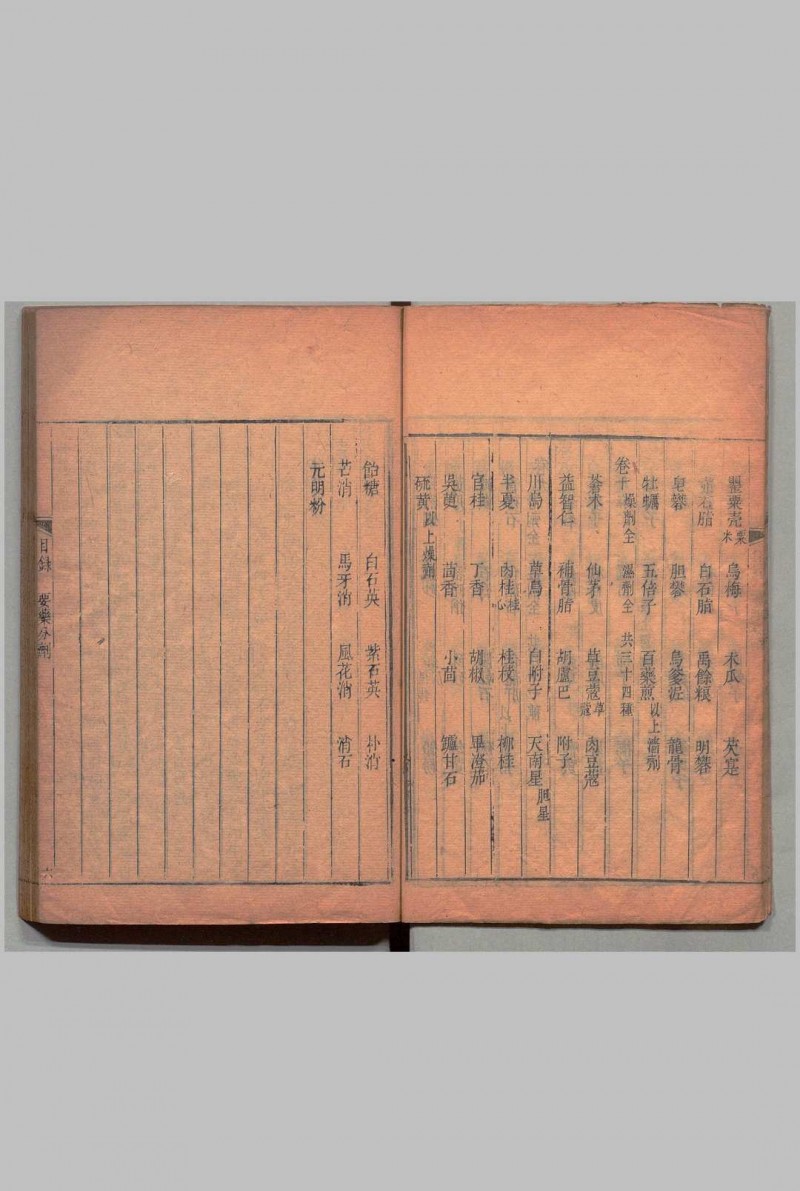 罌粟壳 粟米 烏梅 木瓜 芡寔
石脂 白石脂 禹餘糧 明礬
皂礬 胆礬 烏爹泥 龍骨
牡蠣 五倍子 百藥煎 以上濇劑
卷十 燥劑全 濕劑全 共三十四種
蒼木 仙茅 草豆蔻 草蔻 肉豆蔻
益智仁 補骨脂 胡盧巴 附子
川烏 草烏 白附子 天南星 胆星
半夏 肉桂 桂心 桂枝 柳桂
官桂 丁香 胡椒 畢澄茄
吳萸 茴香 小茴 鑪甘石
硫黄 以上燥劑
飴糖 白石英 紫石英 朴消
芒消 馬牙消 風花消 消石
元明粉
目錄 要藥分劑
六